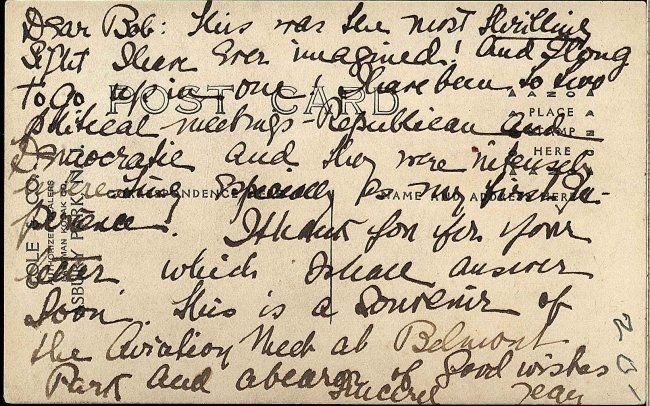 Dear Bob: This was the most thrilling
sight I have ever imagined! And I long
to go up in one! I have been to two
political meetings - Republican and
Democratic and they were intensely
interesting especially as my first ex-
perience! I thank you for your
letter which I shall answer
soon. This is a souvenir of
the Aviation Meet at Belmont
Park and a bearer of good wishes
Jean
POST CARD
PLACE
STAMP
HERE
CORRESPONDENCE
NAME AND ADDRESS HERE
COLE & CO.
AUTHORIZED DEALERS
EASTMAN KODAK CO.
ASBURY PARK, N.J.